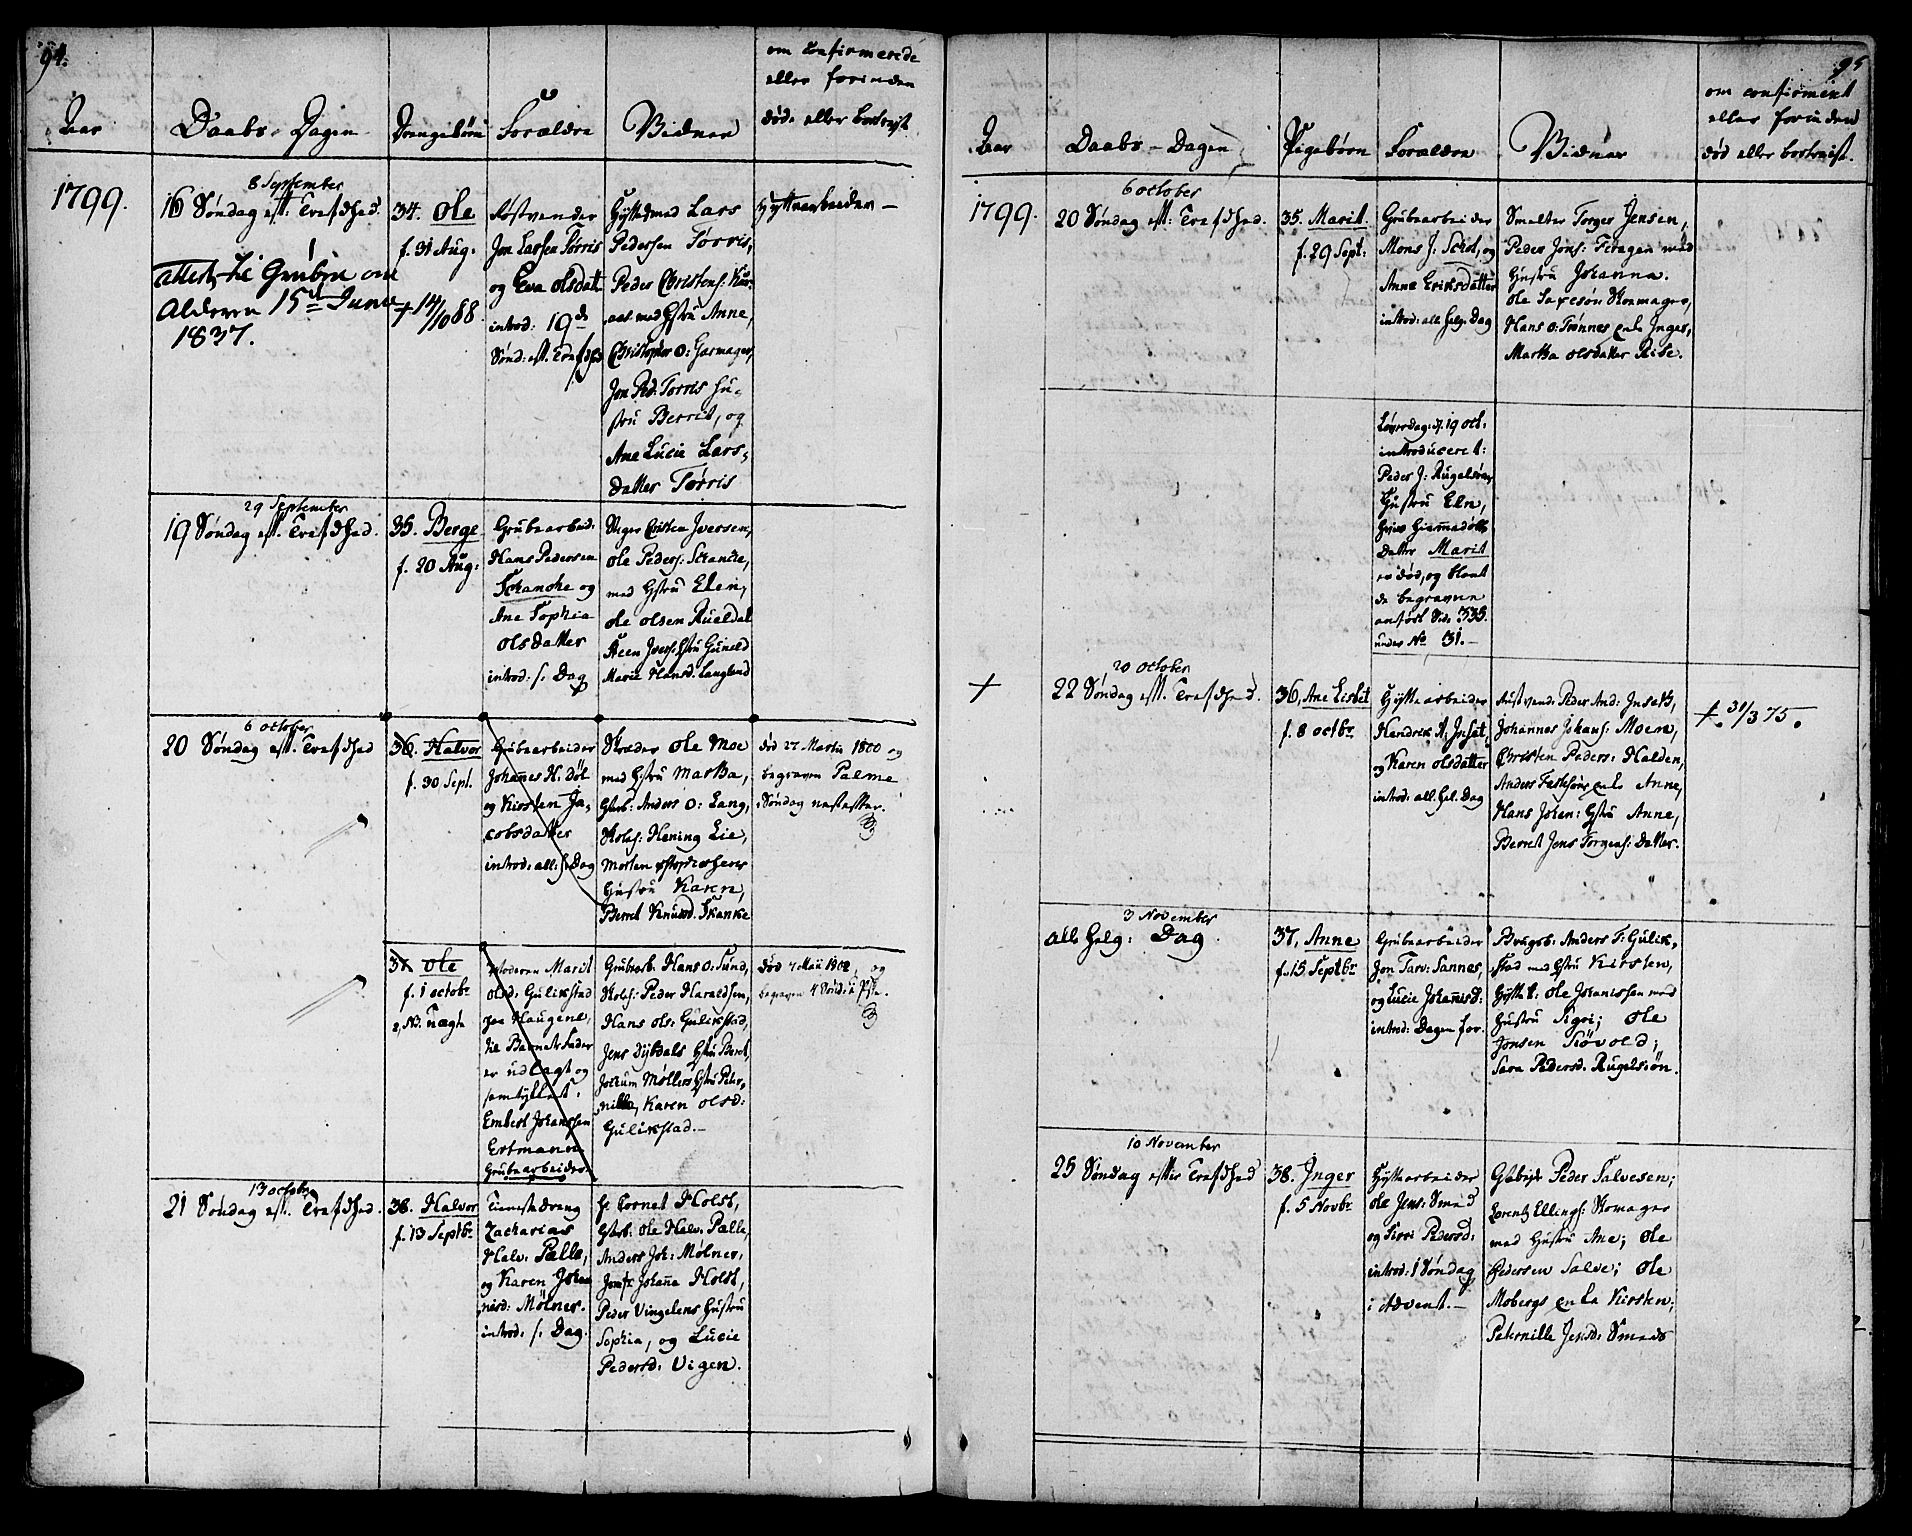 94.
Aar
Daabs-Dagen
Drengebørn
Forældre
Vidner
om confirmerede
eller forinden
død eller bortreist
1799.
8 September
16 Søndag eft: Trefdhed.
attest til Gruben om
Alderen 15de Juni
1837.
34. Ole
f. 31 Aug.
+ 14/10 88.
Jon Larsen Torris
og Eva olsdatt
introd: 19de
Sønd: eft. Trefdhd
Hyttedmed Lars
Pedersen Torris,
Peder Christens:
med Hstru Anne,
Christopher O: Garmager,
Jon Ped: Torris Hu-
stru Berret, og
Ane Lucie Lars-
Datter Torris
Hyttearbeider —
29 September
19 Søndag eft. Trefdhed.
35. Berge
f. 20 Aug:
Grubearbeid:
Hans Pedersen
Schancke og
Ane Sophia
olsdatter
introd: s. Dag
Stiger Christen Iversen,
ole Peders: Schancke,
med Hstru Elen,
ole olsen Rueldal
Steen Ivers: Hstru Gunild
Marie Hansd. Langland
6 october
20 Søndag eft. Trefdhed
36. Halvor
f. 30 Sept.
Grubearbeider
Johanes H. Døl
og Kirsten Ja-
cobsdatter
introd: all: H. Dag
Skræder Ole Moe
med Hstru Martha,
Gbarb: Anders O: Lang,
Skoles: Hening Lie,
Morten
Hustru Karen,
Berret Knudsd. Skanke
død 27 Martii 1800 og
begraven Palme
Søndag nestefter.
37. Ole
f. 1 octobr
2, No: uægte
Moderen Marit
olsd: Gulikstad
paa Haugene,
til Barnets Fader
er udlagt og
samtykket.
Embert Johanssen
Ertmann
Grubearbeider.
Grubearb. Hans O: Sund,
Skoles: Peder Haraldsen,
Hans ols: Gulikstad,
Jens Dijbdals Hstru Beret,
Jochum Møllers Hstru Peter-
nille, Karen olsd:
Gulikstad.—
død 7 Maii 1802, og
begraven 4 Sønd: e. Pske.
13 octobr
21 Søndag eft. Trefdhed.
38. Halvor
f. 13 Septbr
Tienestedreng
Zacharias
Halv. Palle,
og Karen Johan
nesd: Mølner.
introd. s. Dag.
Hr Cornet Holst,
Gbarb: Ole Halv: Palle,
Anders Joh: Mølner,
Jomfr Johana Holst,
Peder Vingelens Hustru
Sophia, og Lucie
Pedersd: Vigen.
95
Aar
Daabs-Dagen
Pigebørn
Forældre
Vidner
om confirmert
eller forinden
død eller bortreist.
1799.
6 october
20 Søndag eft: Trefdhed.
35. Marit
f. 29 Sept:
Grubearbeider
Mons J. Schot, og
Anne Eriksdatter
introd: all. Helg: Dag
Smelter Torger Jensen,
Peder Jons: Feragen med
Hustru Johanna.
Ole Skomager,
Hans O: Trønnes enke Inger,
Martha olsdatter Rise.
Løverdag d. 19 oct.
introduceret:
Peder J: Rugelsøens
Hustru Eln,
hvis hiemmedøbte
Datter Marit
er død, og blant
de begravne
anført Side 335.
under No 31.—
20 october
+
22 Søndag eft. Trefdhed.
36. Ane Lisbet
f. 8 octbr
Hyttearbeider
Hendrik A: Inset,
og Karen olsdatter
introd: all. Hel. Dag
Rustvend: Peder And: Inseth,
Johannes Johans: Moen,
Christen Peders: Halden,
Anders enke Anne,
Hans Johan: Hstru Anne,
Berret Jens Torgens: Datter.
+. 31/3 75.
3 November
all Helg: Dag.
37. Anne
f. 15 Septbr
Grubearbeider
Jon Tarv: Sannes,
og Lucie Johanisd:
introd: Dagen før.
Brugsb: Anders F: Gulik-
stad med Hstru Kirsten,
Hytte t: Ole Johanissen med
Hustru Sigri; Ole
Jonsen Siövold;
Sara Pedersd: Rugelsiön.
10 November
25 Søndag efter Trefdhed
38. Inger
f. 5 Novbr
Hyttearbeider
Ole Jens: Smed
og Siri Pedersd:
introd: 1 Søndag
i Advent.—
Peder Salvesen;
Lorentz Ellings: Skomager
med Hustru Ane; Ole
Pedersen Salve; Ole
Mobergs enke Kirsten;
Peternille Jensd: Smeds